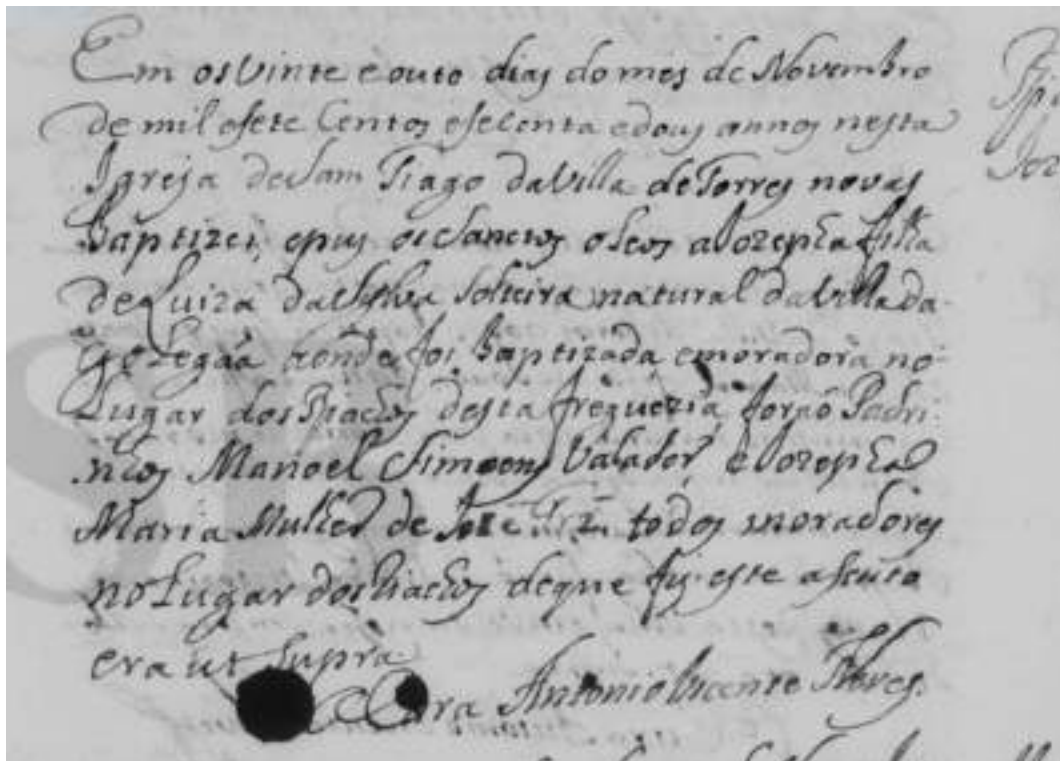 Em os Vinte e outo dias do mes de Novembro
de mil e sete Centos e secenta e dous annos nesta
Igreja de Sam Tiago da Villa de Torres novas
Baptizei, e pus os Sanctos oleos a Jozepha filha
de Luiza da Sylva solteira natural da Villa da
Golegaã donde foi Baptizada e moradora no
Lugar dos Riachos desta freguezia, foraõ Padri-
nhos Manoel Simoens Valador, e Jozepha
Maria Mulher de Joze todos moradores
no Lugar dos Riachos de que fis este asento
era ut supra
Cura Antonio Vicente Flores.